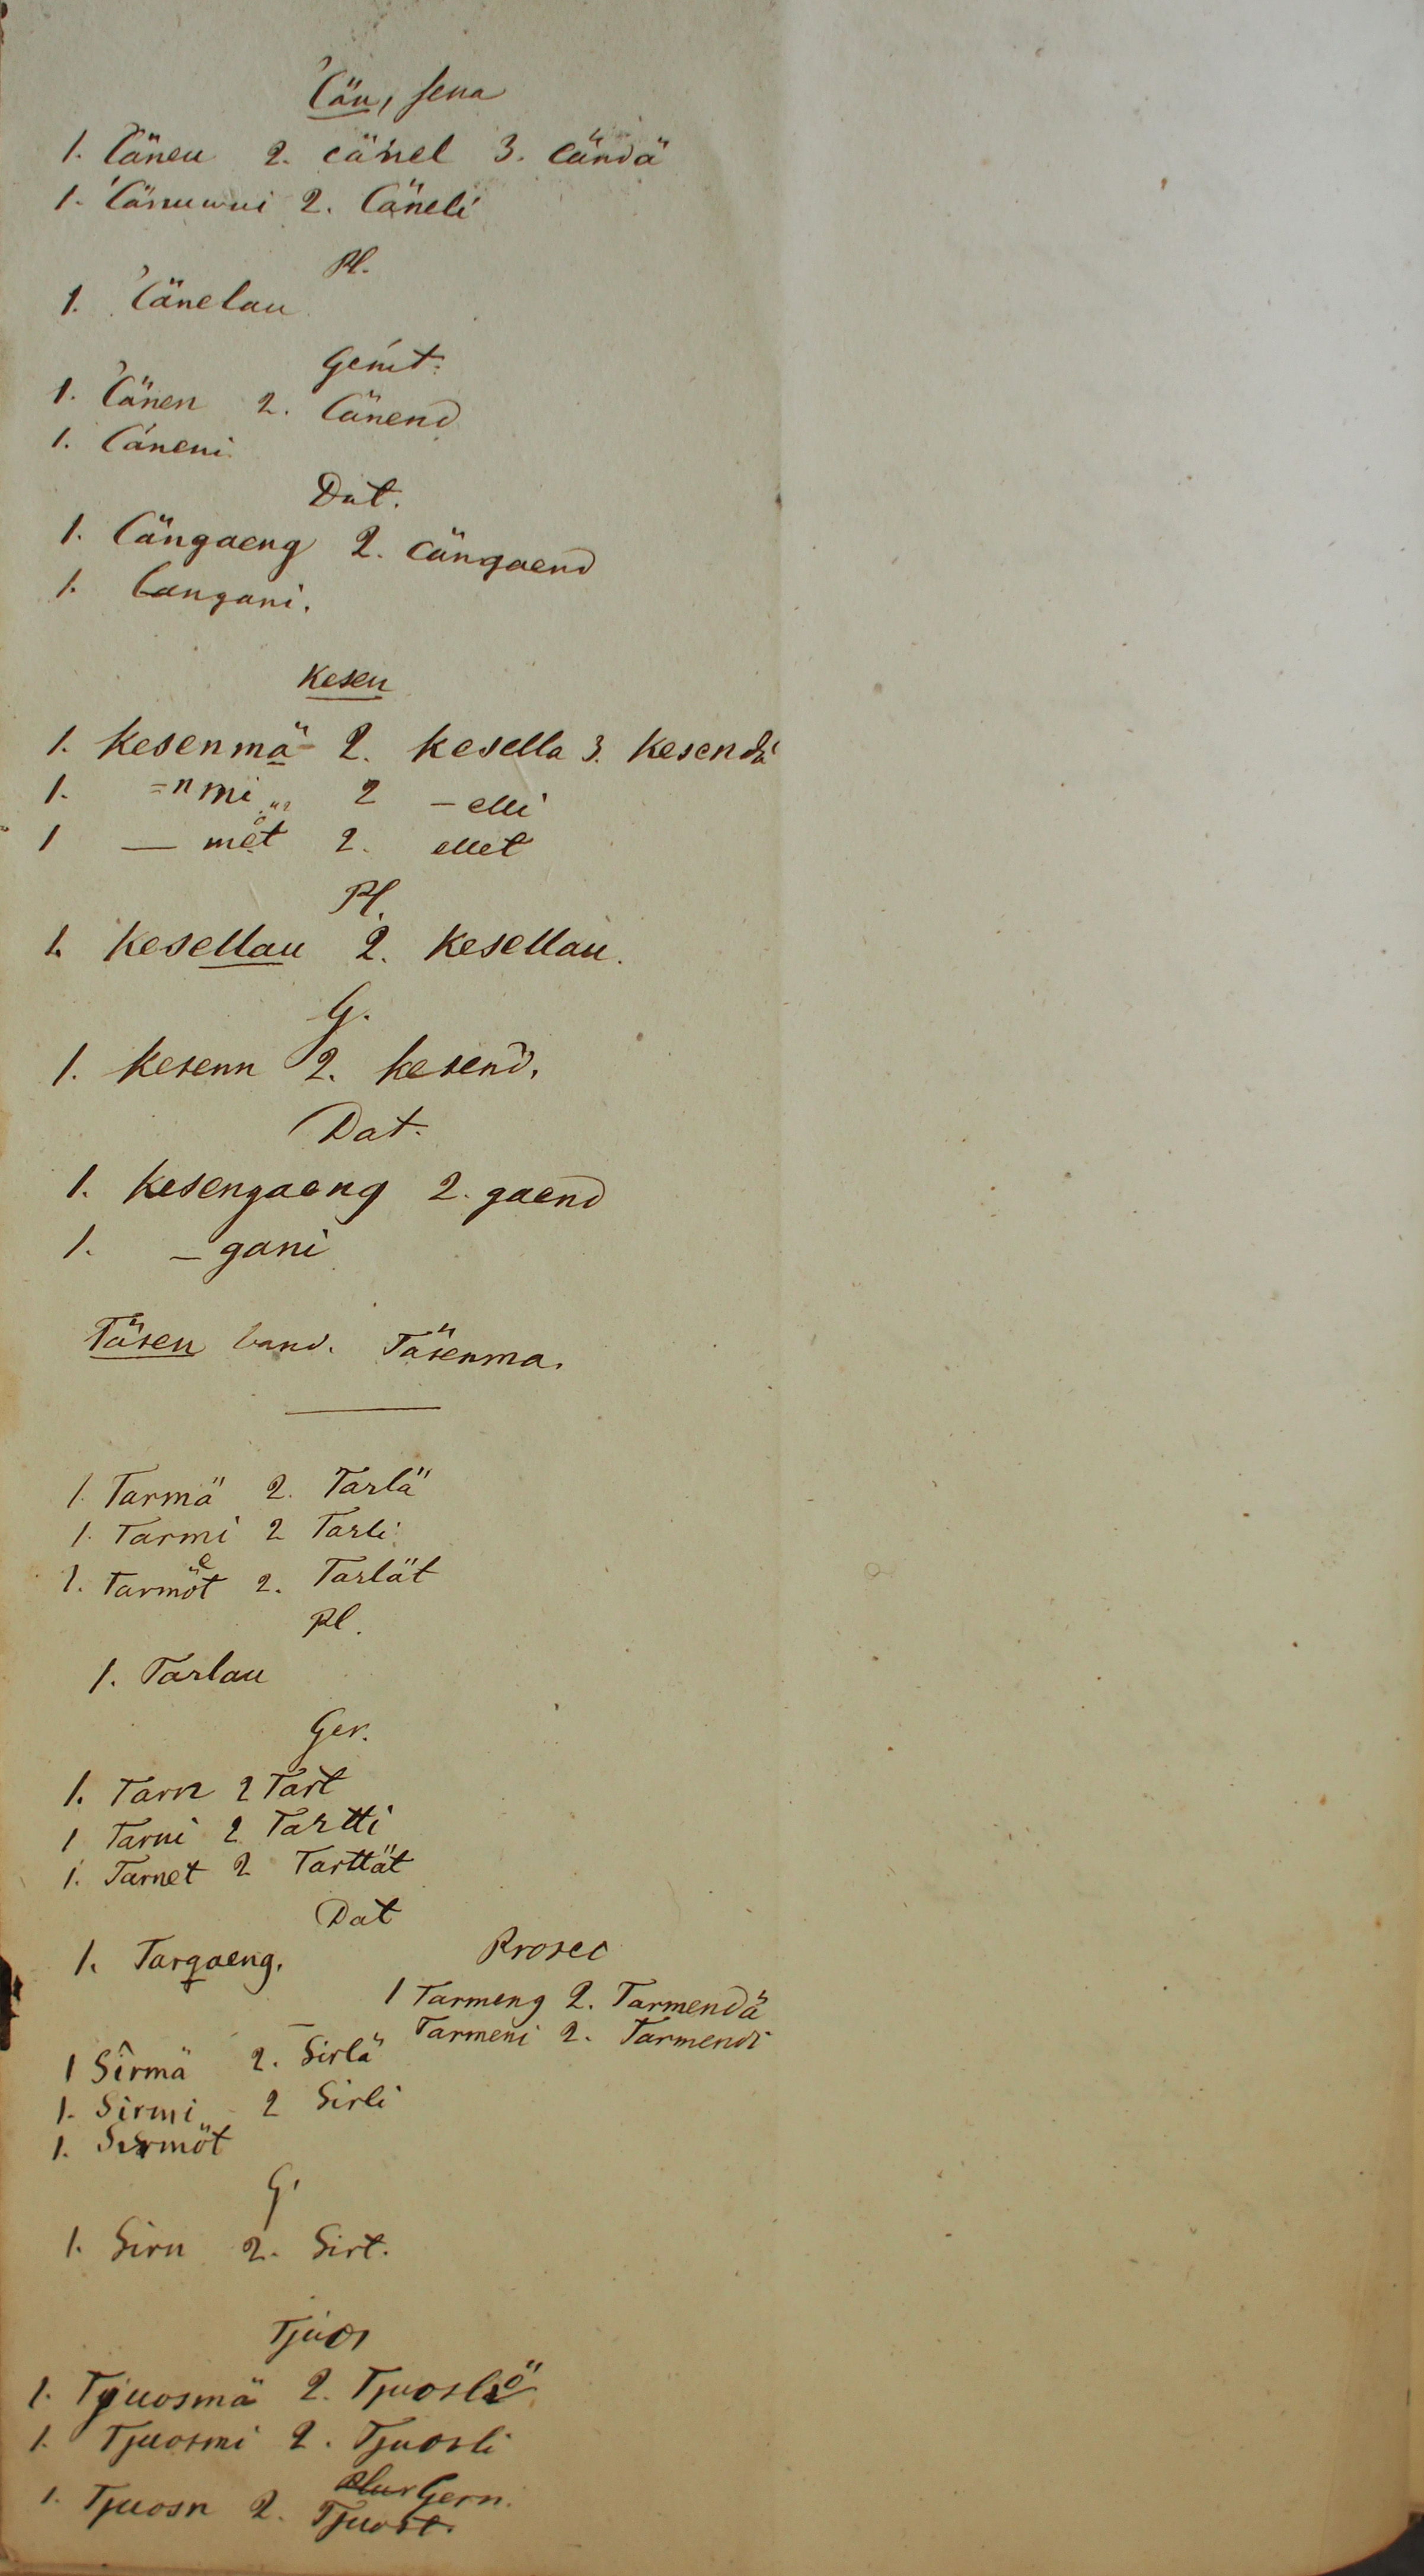 Cän, sena
1. Cäneu 2. cänel 3. cändä
1. Cänuwui 2. Cäneli
Pl.
1. Cänelau
Genit.
1. Cänen 2. Cänend
1. Cäneni
Dat.
1. Cängaeng 2. cängaend
1. Cangani.
Kesen
1. Kesenmä 2. kesella 3. kesendä
1. =nmi 2 – elli
1 — mët 2. ellet
Pl.
1. Kesellau 2. kesellau.
G.
1. Kesenn 2. kesend.
Dat.
1. Kesengaeng 2. gaend
1. – gani
Täsen band. Täsenma.
1. Tarmä 2. Tarlä
1. Tarmi 2 Tarli
1. Tarmöt 2. Tarlät
Pl.
1. Tarlau
Gen.
1. Tarn 2 Tart
1 Tarni 2 Tartti
1. Tarnet 2 Tarttät
Dat
1. Targaeng.
Prosec
1 Tarmeng 2. Tarmendä
Tarmeni 2. Tarmendi
1 Sîrmä 2. Sirlä
1. Sirmi 2 Sirli
1. Sirmöt
G.
1. Sirn 2. Sirt.
Tjuos
1. Tjuosmä 2. Tjuoslö
1. Tjuosmi 2. Tjuosli
Plur Gen.
1. Tjuosn 2. Tjuost.